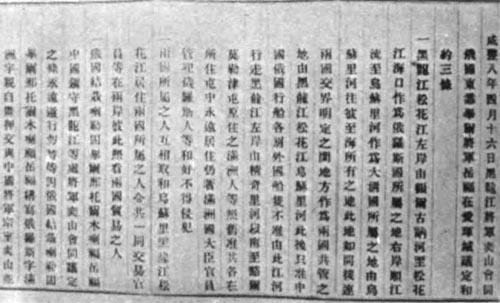 咸豐八年四月十六日黑龍江將軍奕山會同
俄國東悉畢爾將軍岳福在愛琿城議定和
約三條
一黑龍江松花江左岸由額爾古訥河至松花
江海口作為俄羅斯國所屬之地右岸順江
流至烏蘇里河作為大清國所屬之地由烏
蘇里河往彼至海所有之地此地如同接連
兩國交界明定之間地方作為兩國共管之
地由黑龍江松花江烏蘇里河此後只准中
國俄國行船各別外國船隻不准由此江河
行走黑龍江左岸由精奇里河以南至豁爾
莫勒津屯原住之滿洲人等照舊准其各在
所住屯中永遠居住仍著滿洲國大臣官員
管理俄羅斯人等和好不得侵犯
一兩國所屬之人互相取和烏蘇里黑龍江松
花江居住兩國所屬之人令其一同交易官
員等在兩岸彼此照看兩國貿易之人
一俄國結聶喇固畢爾那托爾木喇福岳福
中國鎮守黑龍江等處將軍奕山會同議定
之條永遠遵行勿替等因俄國結聶喇固
畢爾那托爾木喇福岳福繕寫俄羅斯字滿
洲字親自畫押交與中國將軍宗室奕山並